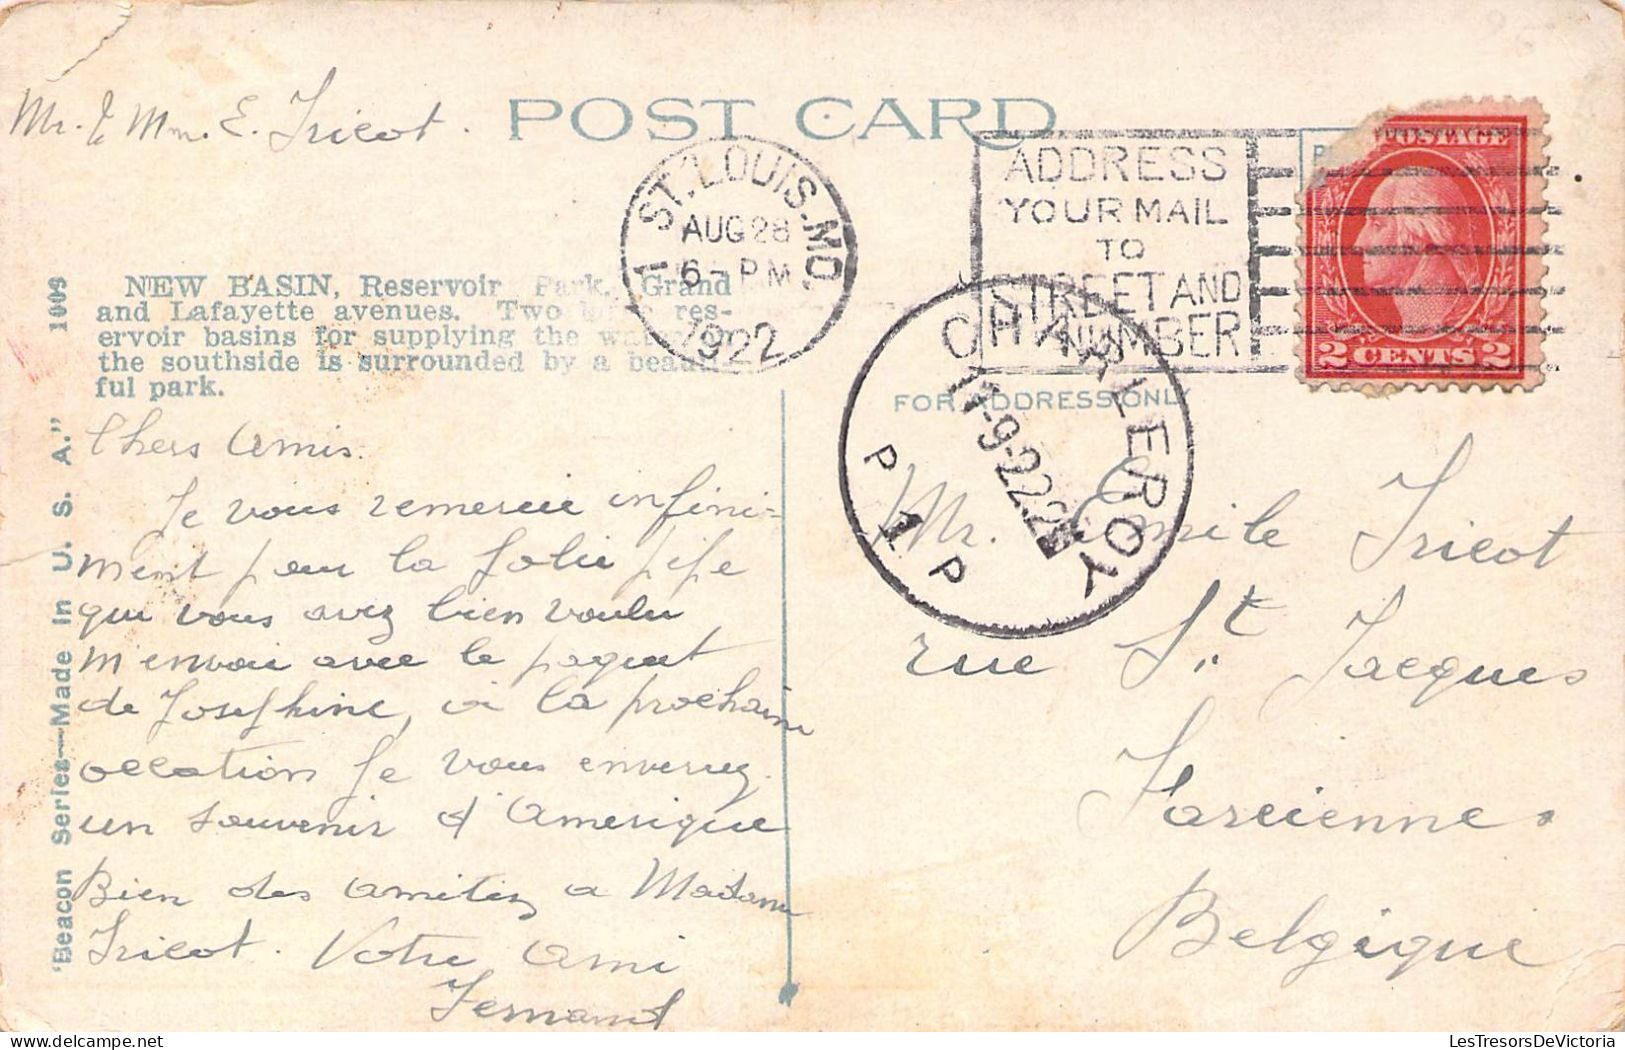 Mr. & Mme. E. Tricot.
POST CARD
1 ST. LOUIS. MO.
AUG 28
6 - PM
1922
ADDRESS
YOUR MAIL
TO
STREET AND
NUMBER
POSTAGE
2 CENTS 2
1009
NEW BASIN, Reservoir Park, Grand
and Lafayette avenues. Two large res-
ervoir basins for supplying the water in
the southside is surrounded by a beauti-
ful park.
"Beacon Series—Made in U. S. A."
FOR ADDRESS ONLY
CHARLEROY
11-9-22
P 1 P
Chers amis.
Je vous remercie infini-
ment pour la jolie pipe
que vous avez bien voulu
m'envoie avec le paquet
de Josephine, à la prochaine
occation je vous enverrez
un souvenir d'Amerique
Bien des amitiez a Madame
Tricot. Votre ami
Fernand
Mr. Emile Tricot
rue St. Jacques
Farcienne.
Belgique
LesTresorsDeVictoria